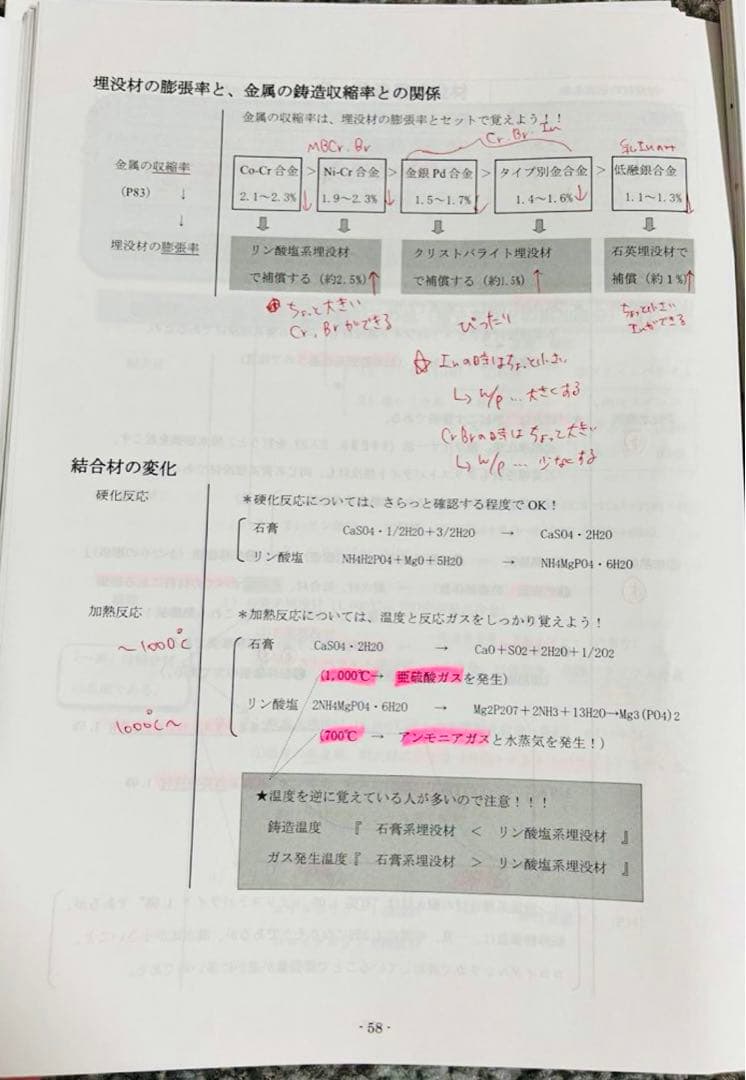 埋没材の膨張率と、金属の鋳造収縮率との関係
金属の収縮率は、埋没材の膨張率とセットで覚えよう!!
MBCr.Br
Cr.Br.In
金属の収縮率
(P83) ↓
↓
埋没材の膨張率
Co-Cr合金 > Ni-Cr合金 > 金銀Pd合金 > タイプ別金合金 > 低融銀合金
2.1～2.3%↓ 1.9～2.3%↓ 1.5～1.7%↓ 1.4～1.6%↓ 1.1～1.3%↓
リン酸塩系埋没材 クリストバライト埋没材 石英埋没材で
で補償する(約2.5%)↑ で補償する(約1.5%)↑ 補償(約1%)↑
ちょっと大きい
Cr、Brができる
ぴったり
ちょっと小さい
Inができる
☆ Inの時はちょっと小さい
↳ W/P … 大きくする
Cr Brの時はちょっと大きい
↳ W/P … 少なくする
結合材の変化
硬化反応
*硬化反応については、さらっと確認する程度でOK!
石膏 CaSO4・1/2H2O+3/2H2O → CaSO4・2H2O
リン酸塩 NH4H2PO4+MgO+5H2O → NH4MgPO4・6H2O
加熱反応
*加熱反応については、温度と反応ガスをしっかり覚えよう!
～1000℃
石膏 CaSO4・2H2O → CaO+SO2+2H2O+1/2O2
(1,000℃→ 亜硫酸ガスを発生)
1000℃～
リン酸塩 2NH4MgPO4・6H2O → Mg2P2O7+2NH3+13H2O→Mg3(PO4)2
(700℃ → アンモニアガスと水蒸気を発生!)
★温度を逆に覚えている人が多いので注意!!!
鋳造温度 『 石膏系埋没材 < リン酸塩系埋没材 』
ガス発生温度『 石膏系埋没材 > リン酸塩系埋没材 』
- 58 -